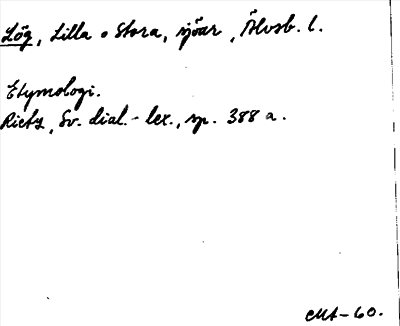 Lög, Lilla o Stora, sjöar, Älvsb. l.
Etymologi.
Rietz, Sv. dial.-lex., sp. 388 a.
-60.